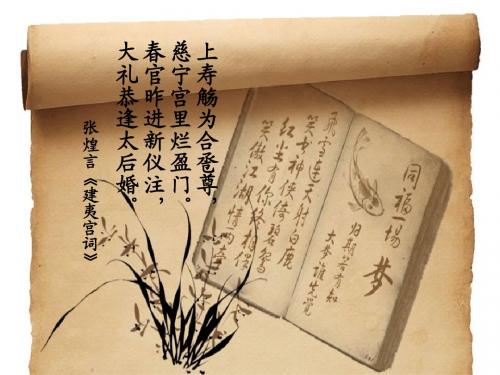 上寿觞为合卺尊，
慈宁宫里烂盈门。
春官昨进新仪注，
大礼恭逢太后婚。
张煌言《建夷宫词》
同福一场
梦
归期若有知
大梦谁先觉
飛雪连天射白鹿
笑书神侠倚碧鸳
红尘有你终相
笑傲江湖情